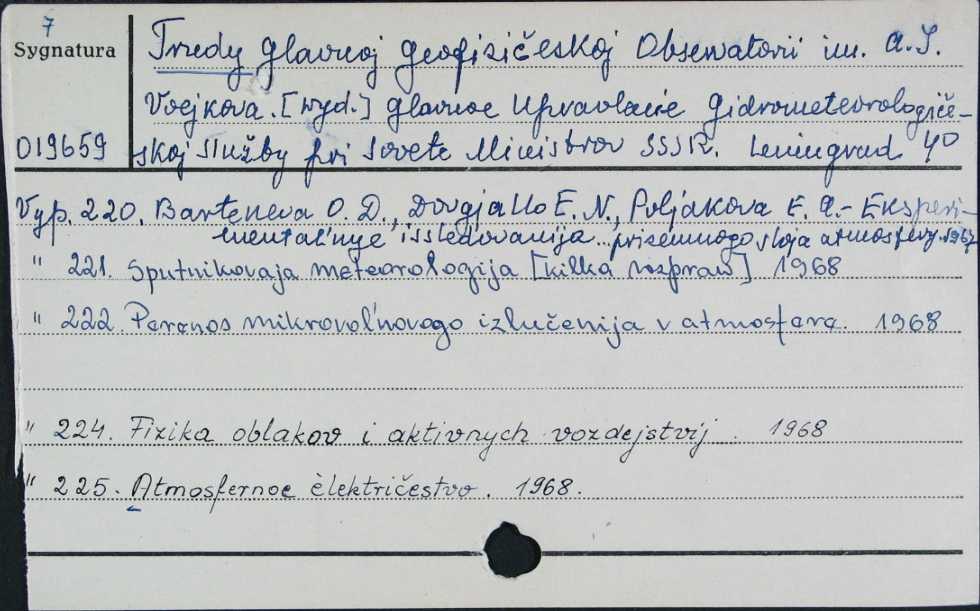 7
Sygnatura
Trudy Glavnoj Geofizičeskoj Observatorii im. A.I.
Voejkova. [wyd.] Glavnoe Upravlenie Gidrometeorologiče-
019659 skoj Služby pri Sovete Ministrov SSSR. Leningrad 40
Vyp. 220. Barteneva O. D., Dovgjallo E. N., Poljakova E. A. - Eksperi-
mental'nye issledovanija... prizemnogo sloja atmosfery. 1967
" 221. Sputnikovaja meteorologija [kilka rozpraw] 1968
" 222. Perenos mikrovol'novogo izlučenija v atmosfere. 1968
" 224. Fizika oblakov i aktivnych vozdejstvij. 1968
" 225. Atmosfernoe èlektričestvo. 1968.